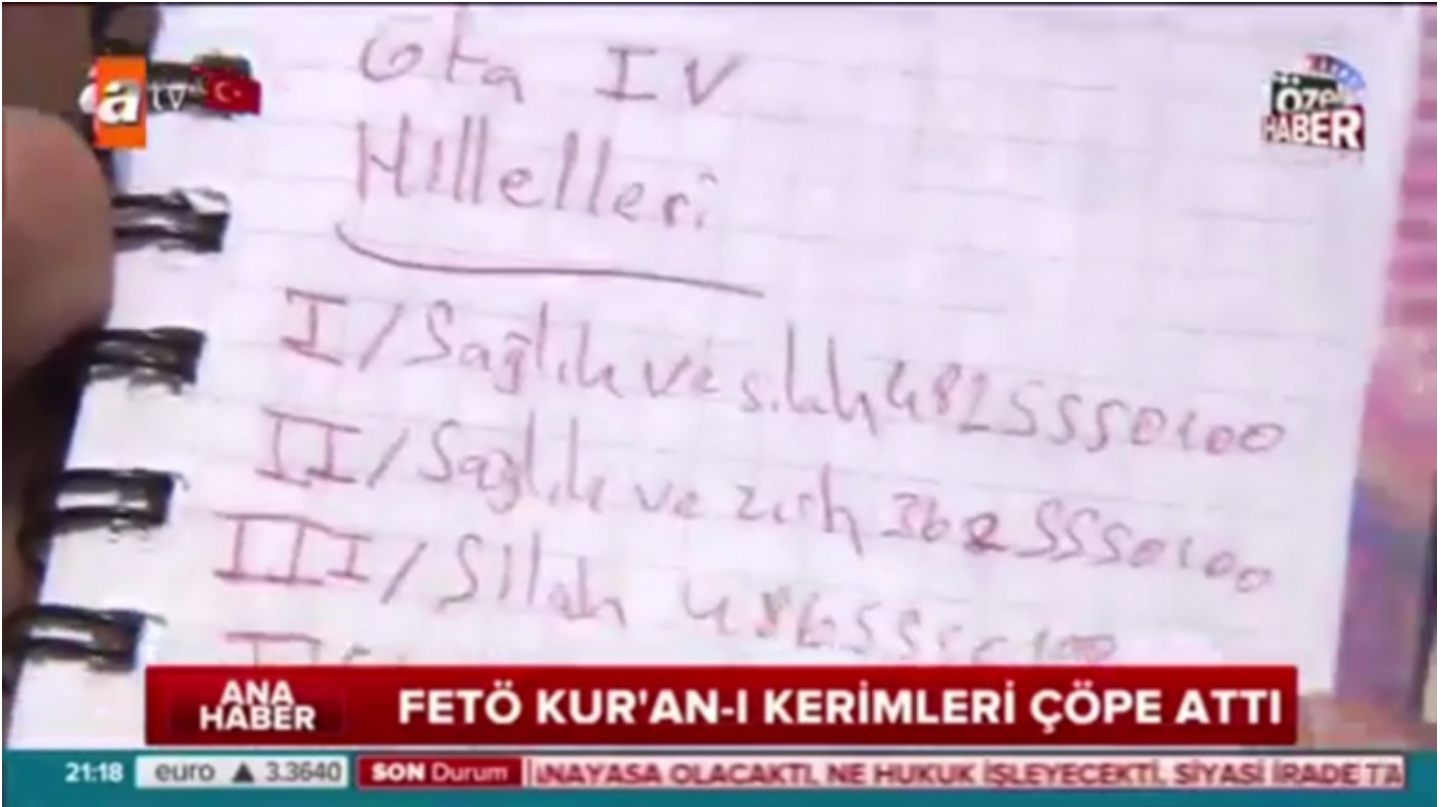 Gta IV
Hilleleri
I/Sağlık ve silah 4825550100
II/Sağlık ve zırh 3625550100
III/Silah 4865550100
a tv
ÖZEL
HABER
ANA
HABER
FETÖ KUR'AN-I KERİMLERİ ÇÖPE ATTI
21:18 euro ▲ 3.3640 SON Durum ANAYASA OLACAKTI, NE HUKUK İŞLEYECEKTİ, SİYASİ İRADE TA